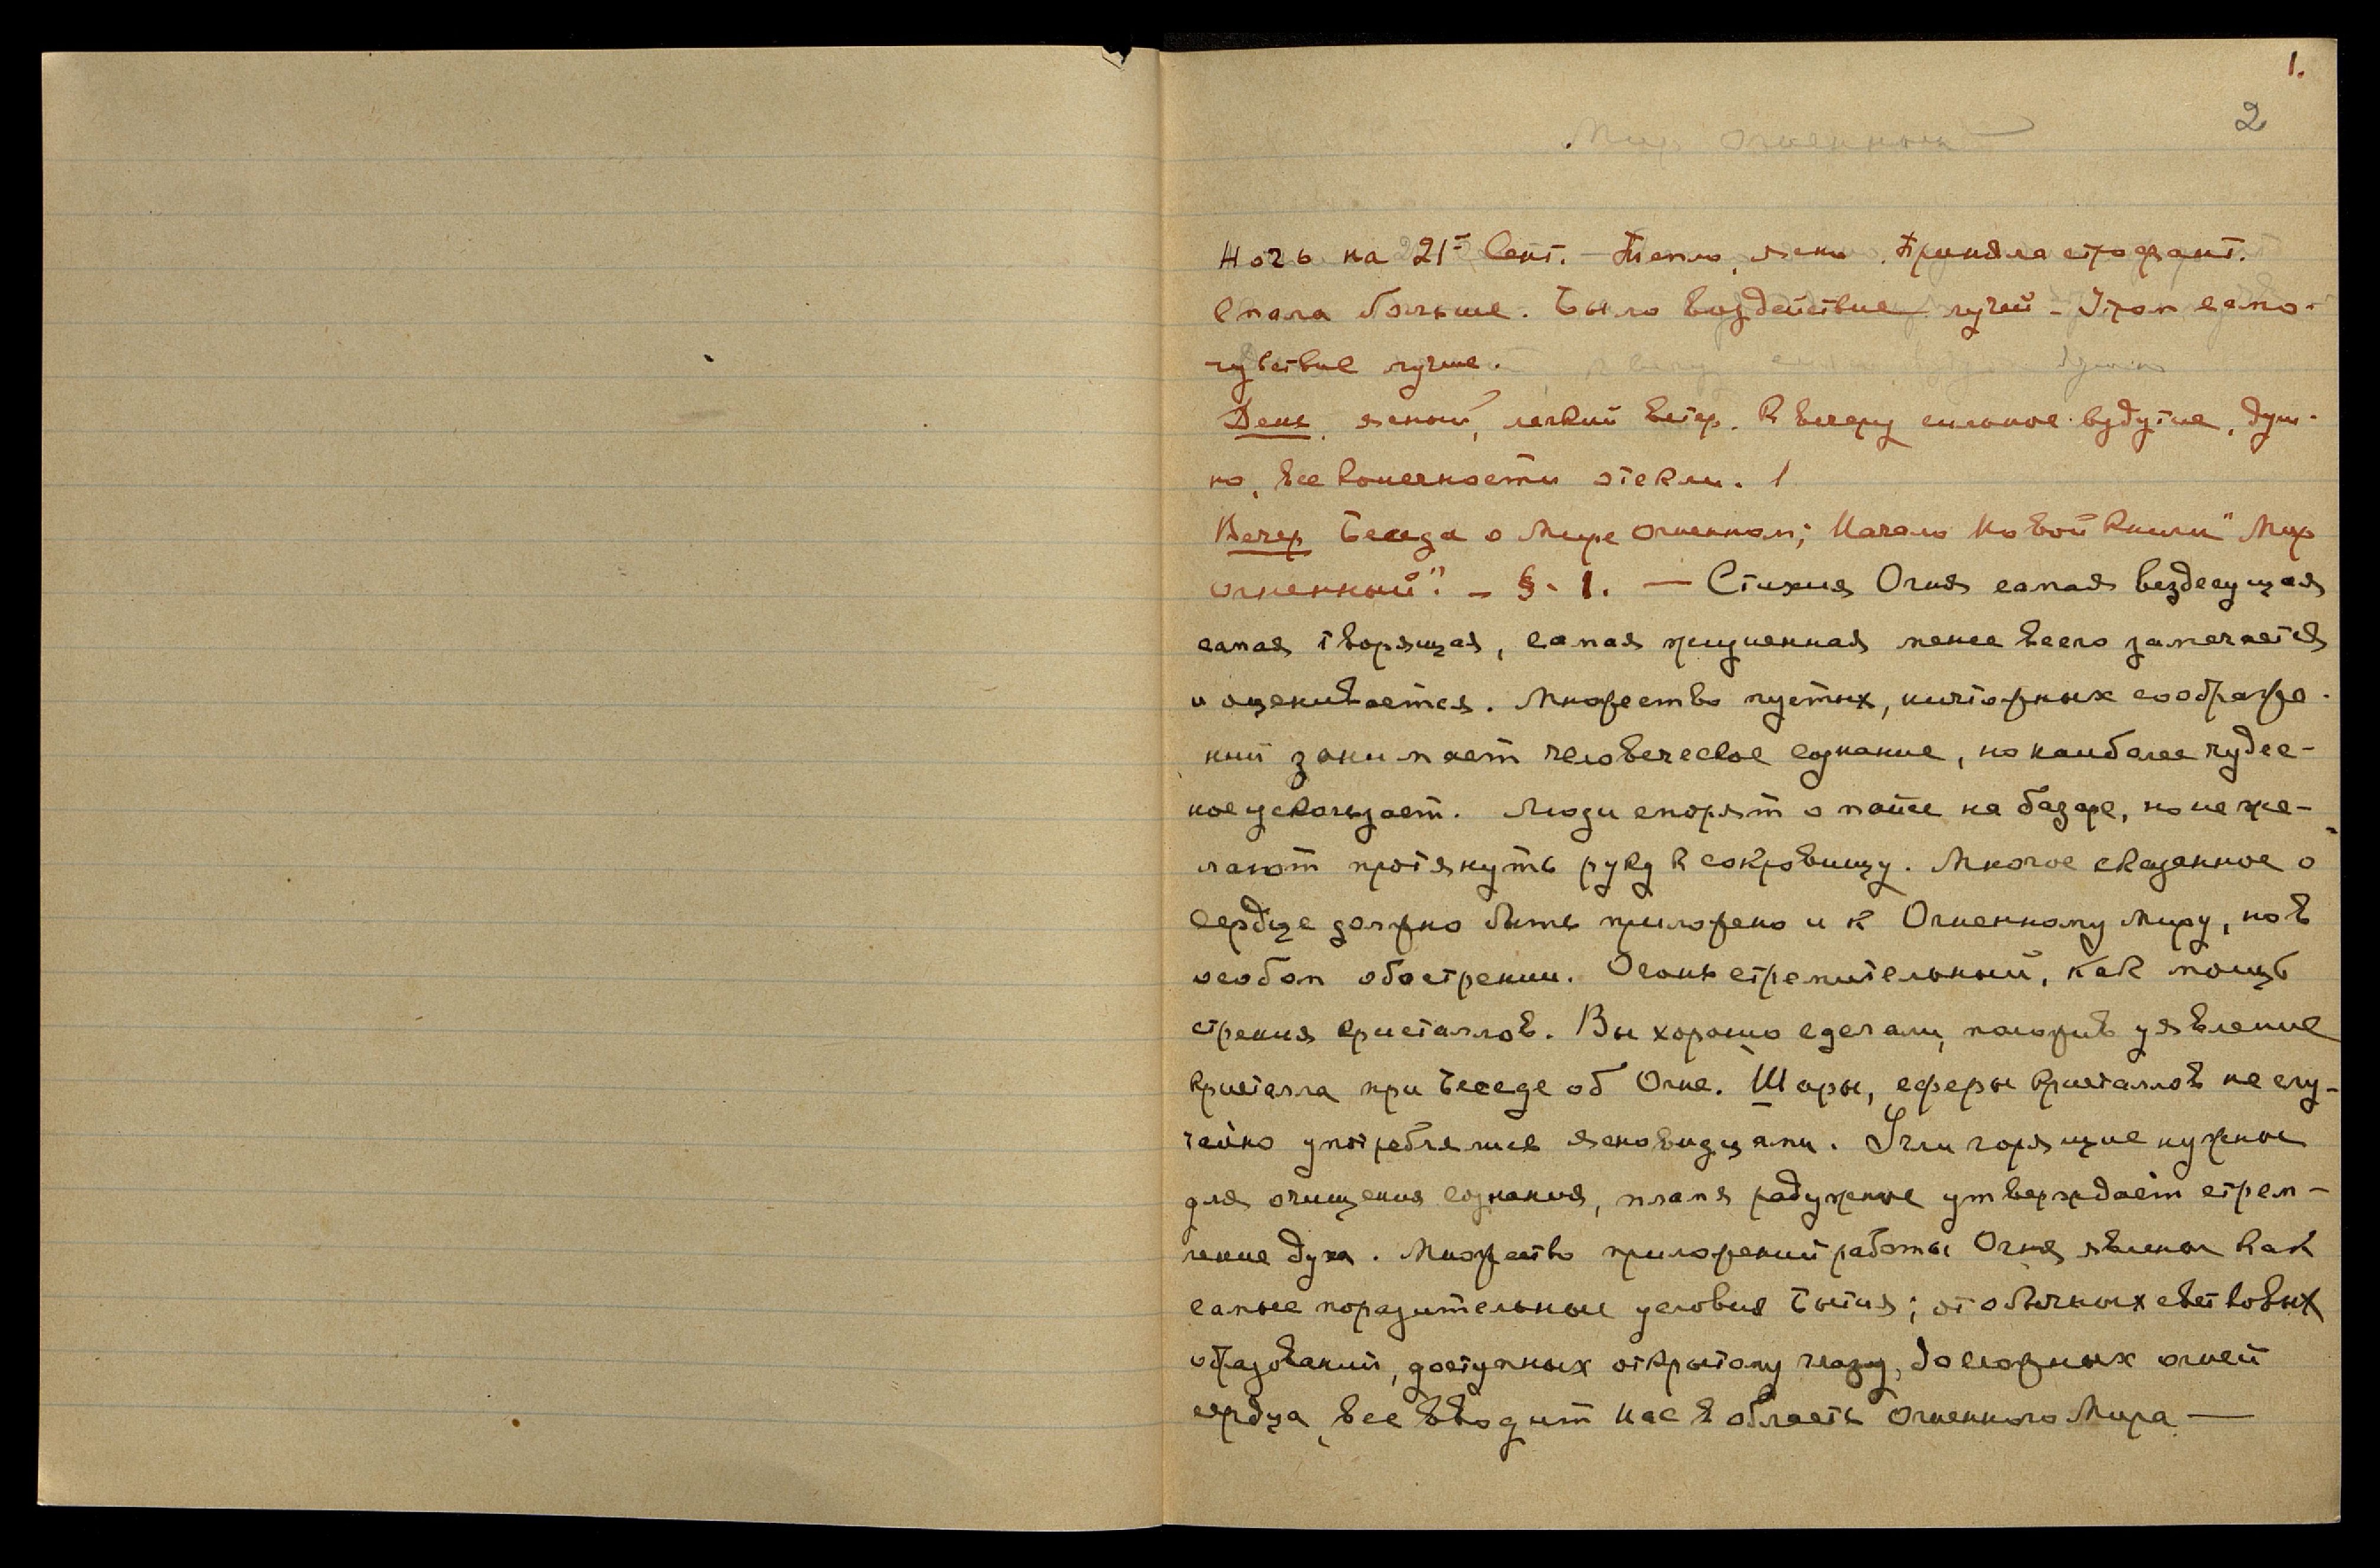 1.
2
Мир Огненный
Ночь на 21ᵉ Сент. — Тепло, ясно. Приняла строфант.
Спала больше. Было воздействие лучей – Утром само-
чувствие лучше.
День, ясный, легкий ветер. К вечеру сильное вздутие, душ-
но, все конечности отекли. 1
Вечер Беседа о Мире Огненном; Начало Новой книги "Мир
Огненный". – § - 1. — Стихия Огня самая вездесущая
самая творящая, самая жизненная менее всего замечается
и оценивается. Множество пустых, ничтожных соображе-
ний занимает человеческое сознание, но наиболее чудес-
ное ускользает. Люди спорят о пайсе на базаре, но не же-
лают протянуть руку к сокровищу. Многое сказанное о
сердце должно быть приложено и к Огненному Миру, но в
особом обострении. Огонь стремительный, как мощь
строения кристаллов. Вы хорошо сделали, положив уявление
кристалла при Беседе об Огне. Шары, сферы кристаллов не слу-
чайно употреблялись ясновидцами. Угли горящие нужны
для очищения сознания, пламя радужное утверждает стрем-
ление духа. Множество приложений работы Огня явлены как
самые поразительные условия Бытия; от обычных световых
образований, доступных открытому глазу, до сложных огней
сердца, все вводит нас в область Огненного Мира —